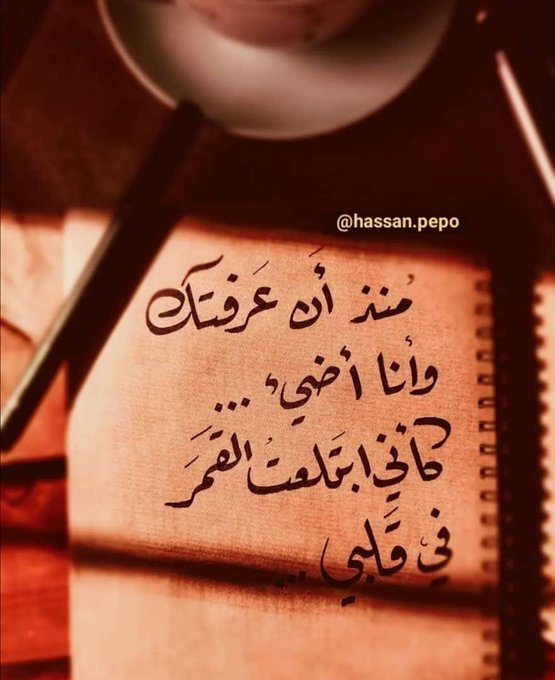 @hassan.pepo
مُنذ أَن عَرفتك
وأنا أضيء ...
كأني ابتَلعتُ القَمَر
في قَلبي ...